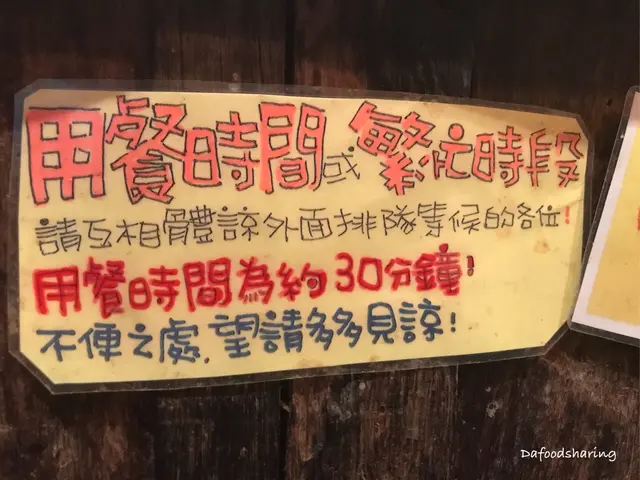 用餐時間或繁忙時段
請互相體諒外面排隊等候的各位!
用餐時間為約30分鐘!
不便之處,望請多多見諒!
Dafoodsharing